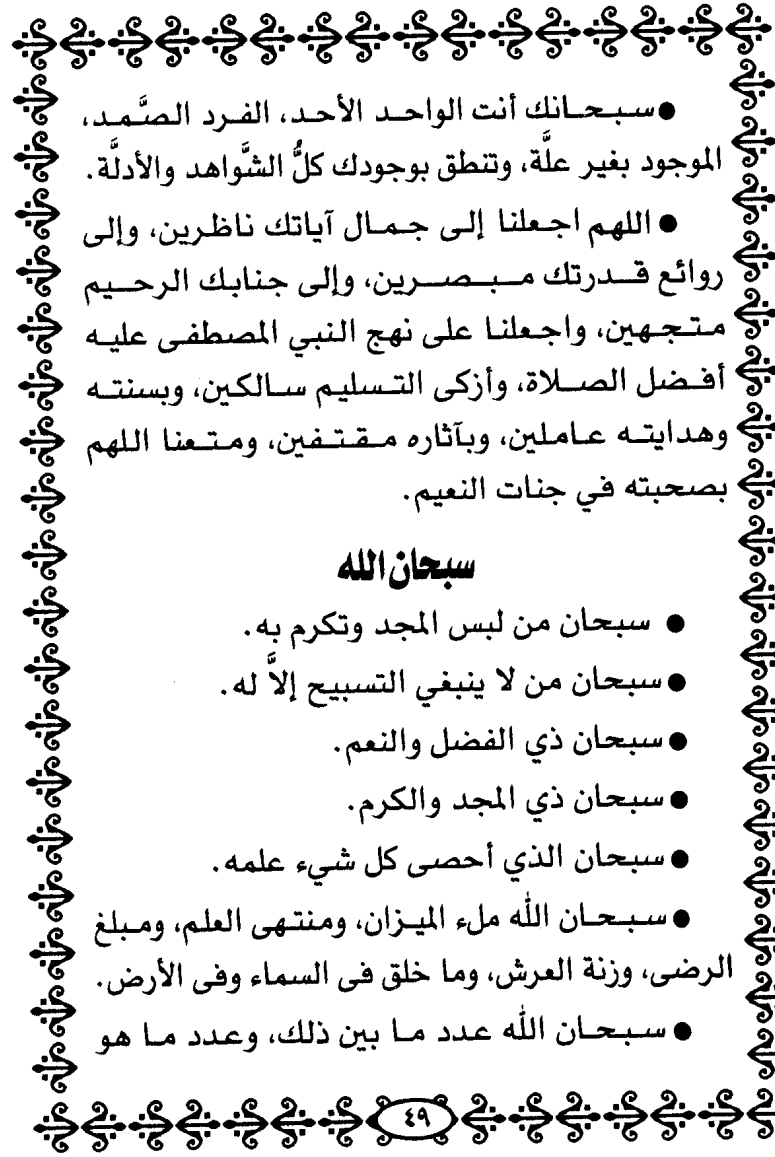 ● سبحانك أنت الواحد الأحد، الفرد الصَّمد،
الموجود بغير علَّة، وتنطق بوجودك كلُّ الشَّواهد والأدلَّة.
● اللهم اجعلنا إلى جمال آياتك ناظرين، وإلى
روائع قدرتك مبصرين، وإلى جنابك الرحيم
متجهين، واجعلنا على نهج النبي المصطفى عليه
أفضل الصلاة، وأزكى التسليم سالكين، وبسنته
وهدايته عاملين، وبآثاره مقتفين، ومتعنا اللهم
بصحبته في جنات النعيم.
سبحان الله
● سبحان من لبس المجد وتكرم به.
● سبحان من لا ينبغي التسبيح إلاَّ له.
● سبحان ذي الفضل والنعم.
● سبحان ذي المجد والكرم.
● سبحان الذي أحصى كل شيء علمه.
● سبحان الله ملء الميزان، ومنتهى العلم، ومبلغ
الرضى، وزنة العرش، وما خلق فى السماء وفى الأرض.
● سبحان الله عدد ما بين ذلك، وعدد ما هو
٤٩